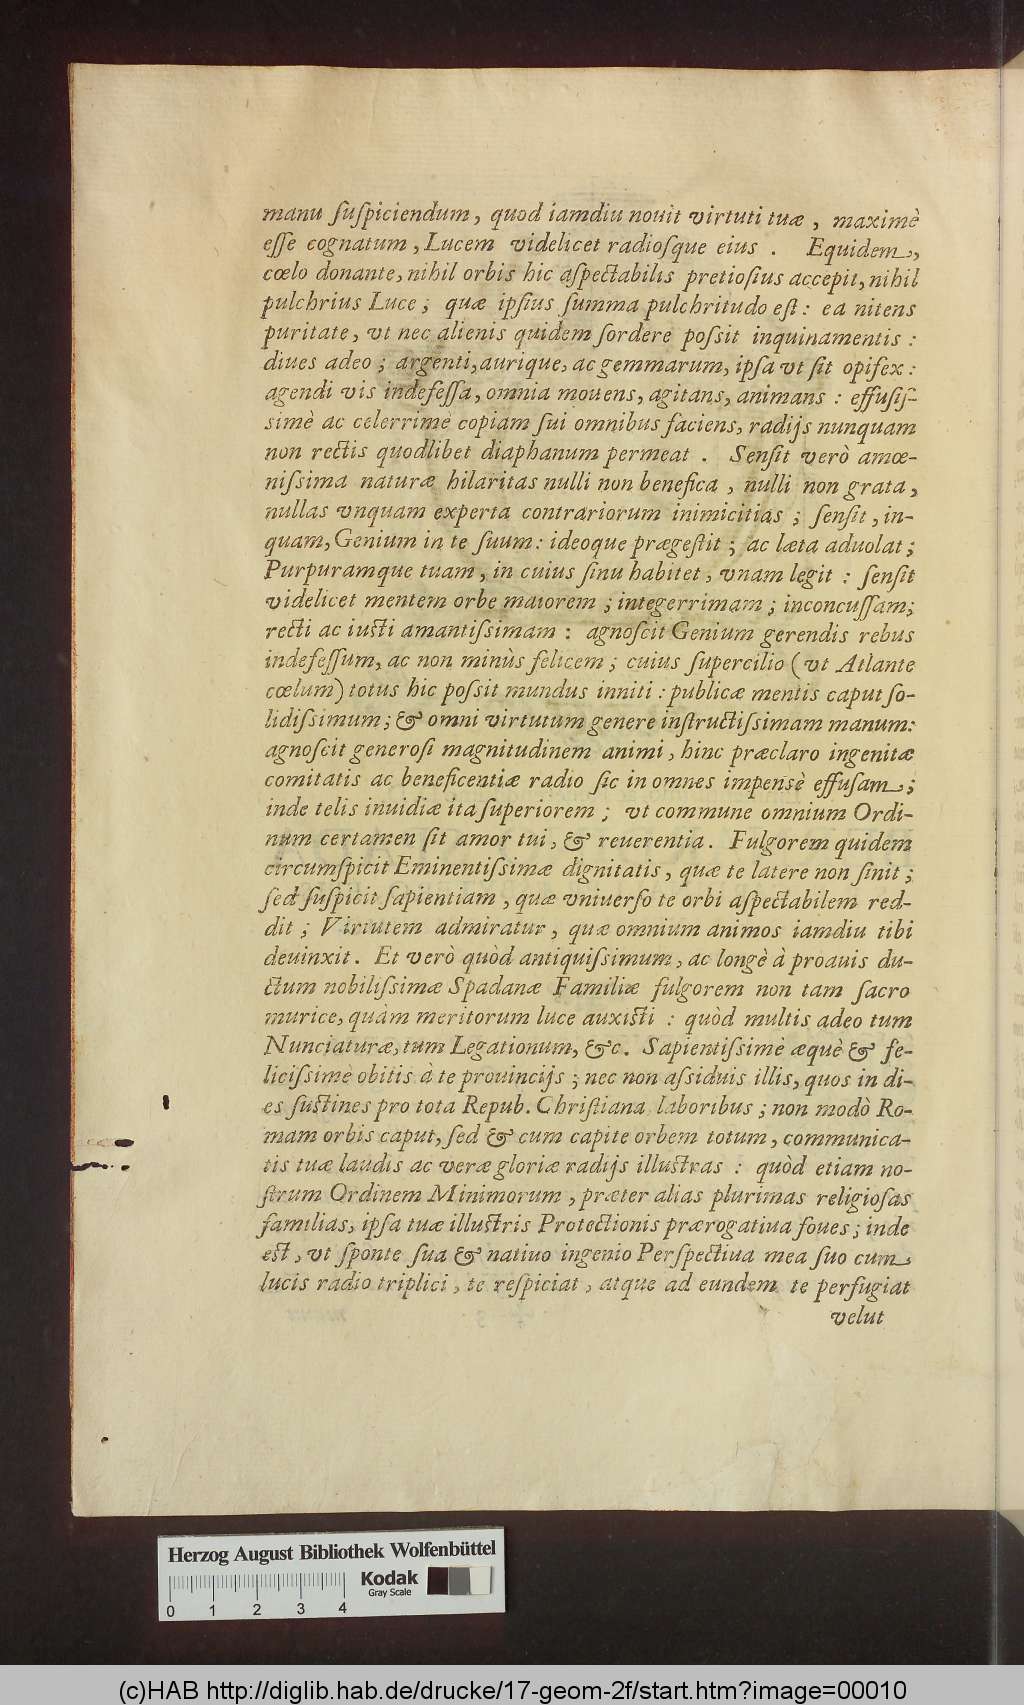 manu ſuſpiciendum, quod iamdiu nouit virtuti tuæ, maximè
eſſe cognatum, Lucem videlicet radioſque eius. Equidem,
cœlo donante, nihil orbis hic aſpectabilis pretioſius accepit, nihil
pulchrius Luce; quæ ipſius ſumma pulchritudo eſt: ea nitens
puritate, vt nec alienis quidem ſordere poſsit inquinamentis:
diues adeo; argenti, aurique, ac gemmarum, ipſa vt ſit opifex:
agendi vis indefeſſa, omnia mouens, agitans, animans: effuſiſ-
simè ac celerrimè copiam ſui omnibus faciens, radijs nunquam
non rectis quodlibet diaphanum permeat. Senſit verò amœ-
niſsima naturæ hilaritas nulli non benefica, nulli non grata,
nullas vnquam experta contrariorum inimicitias; ſenſit, in-
quam, Genium in te ſuum: ideoque prægeſtit; ac læta aduolat;
Purpuramque tuam, in cuius ſinu habitet, vnam legit: ſenſit
videlicet mentem orbe maiorem; integerrimam; inconcuſſam;
recti ac iuſti amantiſsimam: agnoſcit Genium gerendis rebus
indefeſſum, ac non minùs felicem; cuius ſupercilio (vt Atlante
cœlum) totus hic poſsit mundus inniti: publicæ mentis caput ſo-
lidiſsimum; & omni virtutum genere inſtructiſsimam manum:
agnoſcit generoſi magnitudinem animi, hinc præclaro ingenitæ
comitatis ac beneficentiæ radio ſic in omnes impensè effuſam;
inde telis inuidiæ ita ſuperiorem; vt commune omnium Ordi-
num certamen ſit amor tui, & reuerentia. Fulgorem quidem
circumſpicit Eminentiſsimæ dignitatis, quæ te latere non ſinit;
ſed ſuſpicit ſapientiam, quæ vniuerſo te orbi aſpectabilem red-
dit; Virtutem admiratur, quæ omnium animos iamdiu tibi
deuinxit. Et verò quòd antiquiſsimum, ac longè à proauis du-
ctum nobiliſsimæ Spadanæ Familiæ fulgorem non tam ſacro
murice, quàm meritorum luce auxiſti: quòd multis adeo tum
Nunciaturæ, tum Legationum, &c. Sapientiſsimè æquè & fe-
liciſsimè obitis à te prouincijs; nec non aſsiduis illis, quos in di-
es ſuſtines pro tota Repub. Chriſtiana laboribus; non modò Ro-
mam orbis caput, ſed & cum capite orbem totum, communica-
tis tuæ laudis ac veræ gloriæ radijs illuſtras: quòd etiam no-
ſtrum Ordinem Minimorum, præter alias plurimas religioſas
familias, ipſa tuæ illuſtris Protectionis prærogatiua foues; inde
eſt, vt ſponte ſua & natiuo ingenio Perſpectiua mea ſuo cum
lucis radio triplici, te reſpiciat, atque ad eundem te perfugiat
velut
Herzog August Bibliothek Wolfenbüttel
Kodak
Gray Scale
0 1 2 3 4
(c)HAB http://diglib.hab.de/drucke/17-geom-2f/start.htm?image=00010